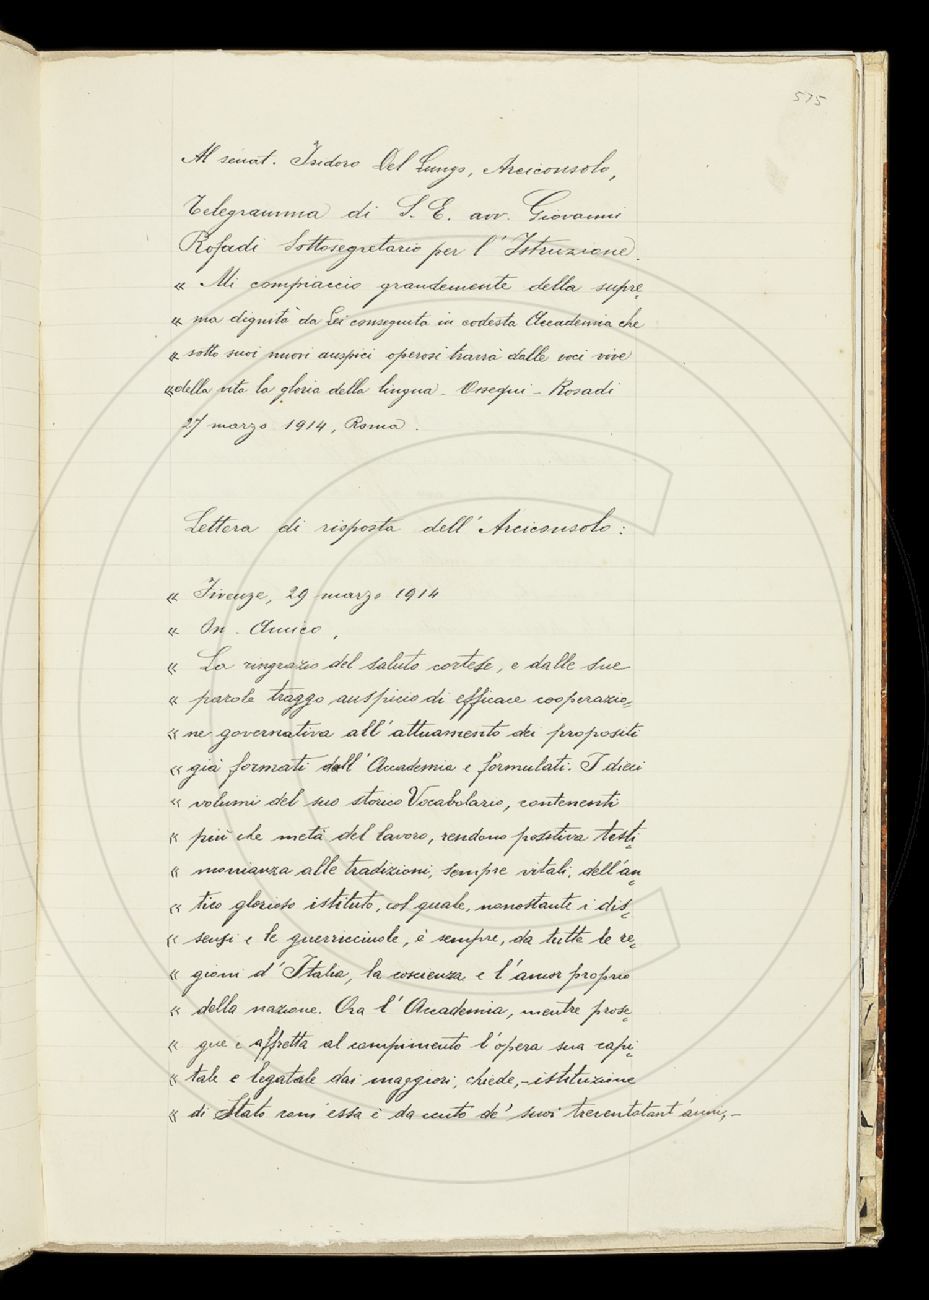 575
Al senat. Isidoro Del Lungo, Arciconsolo,
Telegramma di S. E. avv. Giovanni
Rosadi Sottosegretario per l'Istruzione.
« Mi compiaccio grandemente della supre-
« ma dignità da Lei conseguita in codesta Accademia che
« sotto suoi nuovi auspici operosi trarrà dalle voci vive
« della vita la gloria della lingua - Ossequi - Rosadi
27 marzo 1914, Roma.
Lettera di risposta dell'Arciconsolo:
« Firenze, 29 marzo 1914
« On. Amico,
« La ringrazio del saluto cortese, e dalle sue
« parole traggo auspicio di efficace cooperazio=
« ne governativa all'attuamento dei propositi
« già formati dall'Accademia e formulati. I dieci
« volumi del suo storico Vocabolario, contenenti
« più che metà del lavoro, rendono positiva testi=
« monianza alle tradizioni, sempre vitali, dell'an=
« tico glorioso istituto, col quale, nonostante i dis=
« sensi e le guerricciuole, è sempre, da tutte le re=
« gioni d'Italia, la coscienza e l'amor proprio
« della nazione. Ora l'Accademia, mentre prose=
« gue e affretta al compimento l'opera sua capi=
« tale e legatale dai maggiori, chiede, - istituzione
« di Stato com'essa è da cento de' suoi trecentotant'anni, -